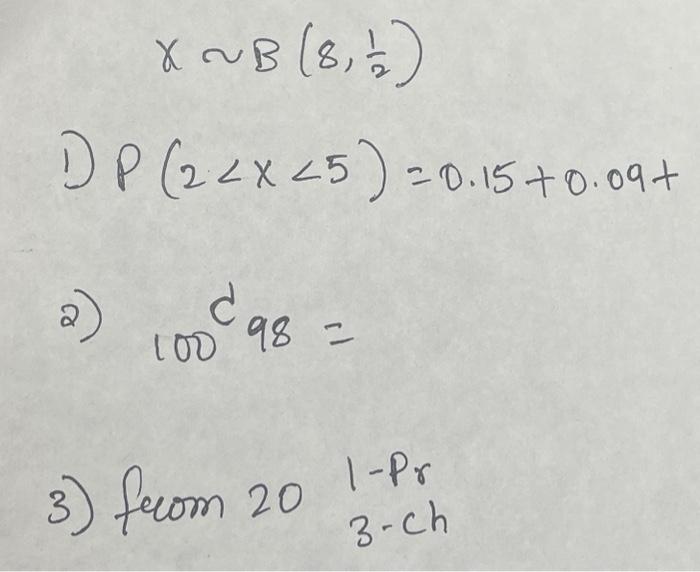 X ~ B (8, 1/2)
1) P (2 < X < 5) = 0.15 + 0.09 +
2) 100 C 98 =
3) from 20 1 - Pr
3 - ch